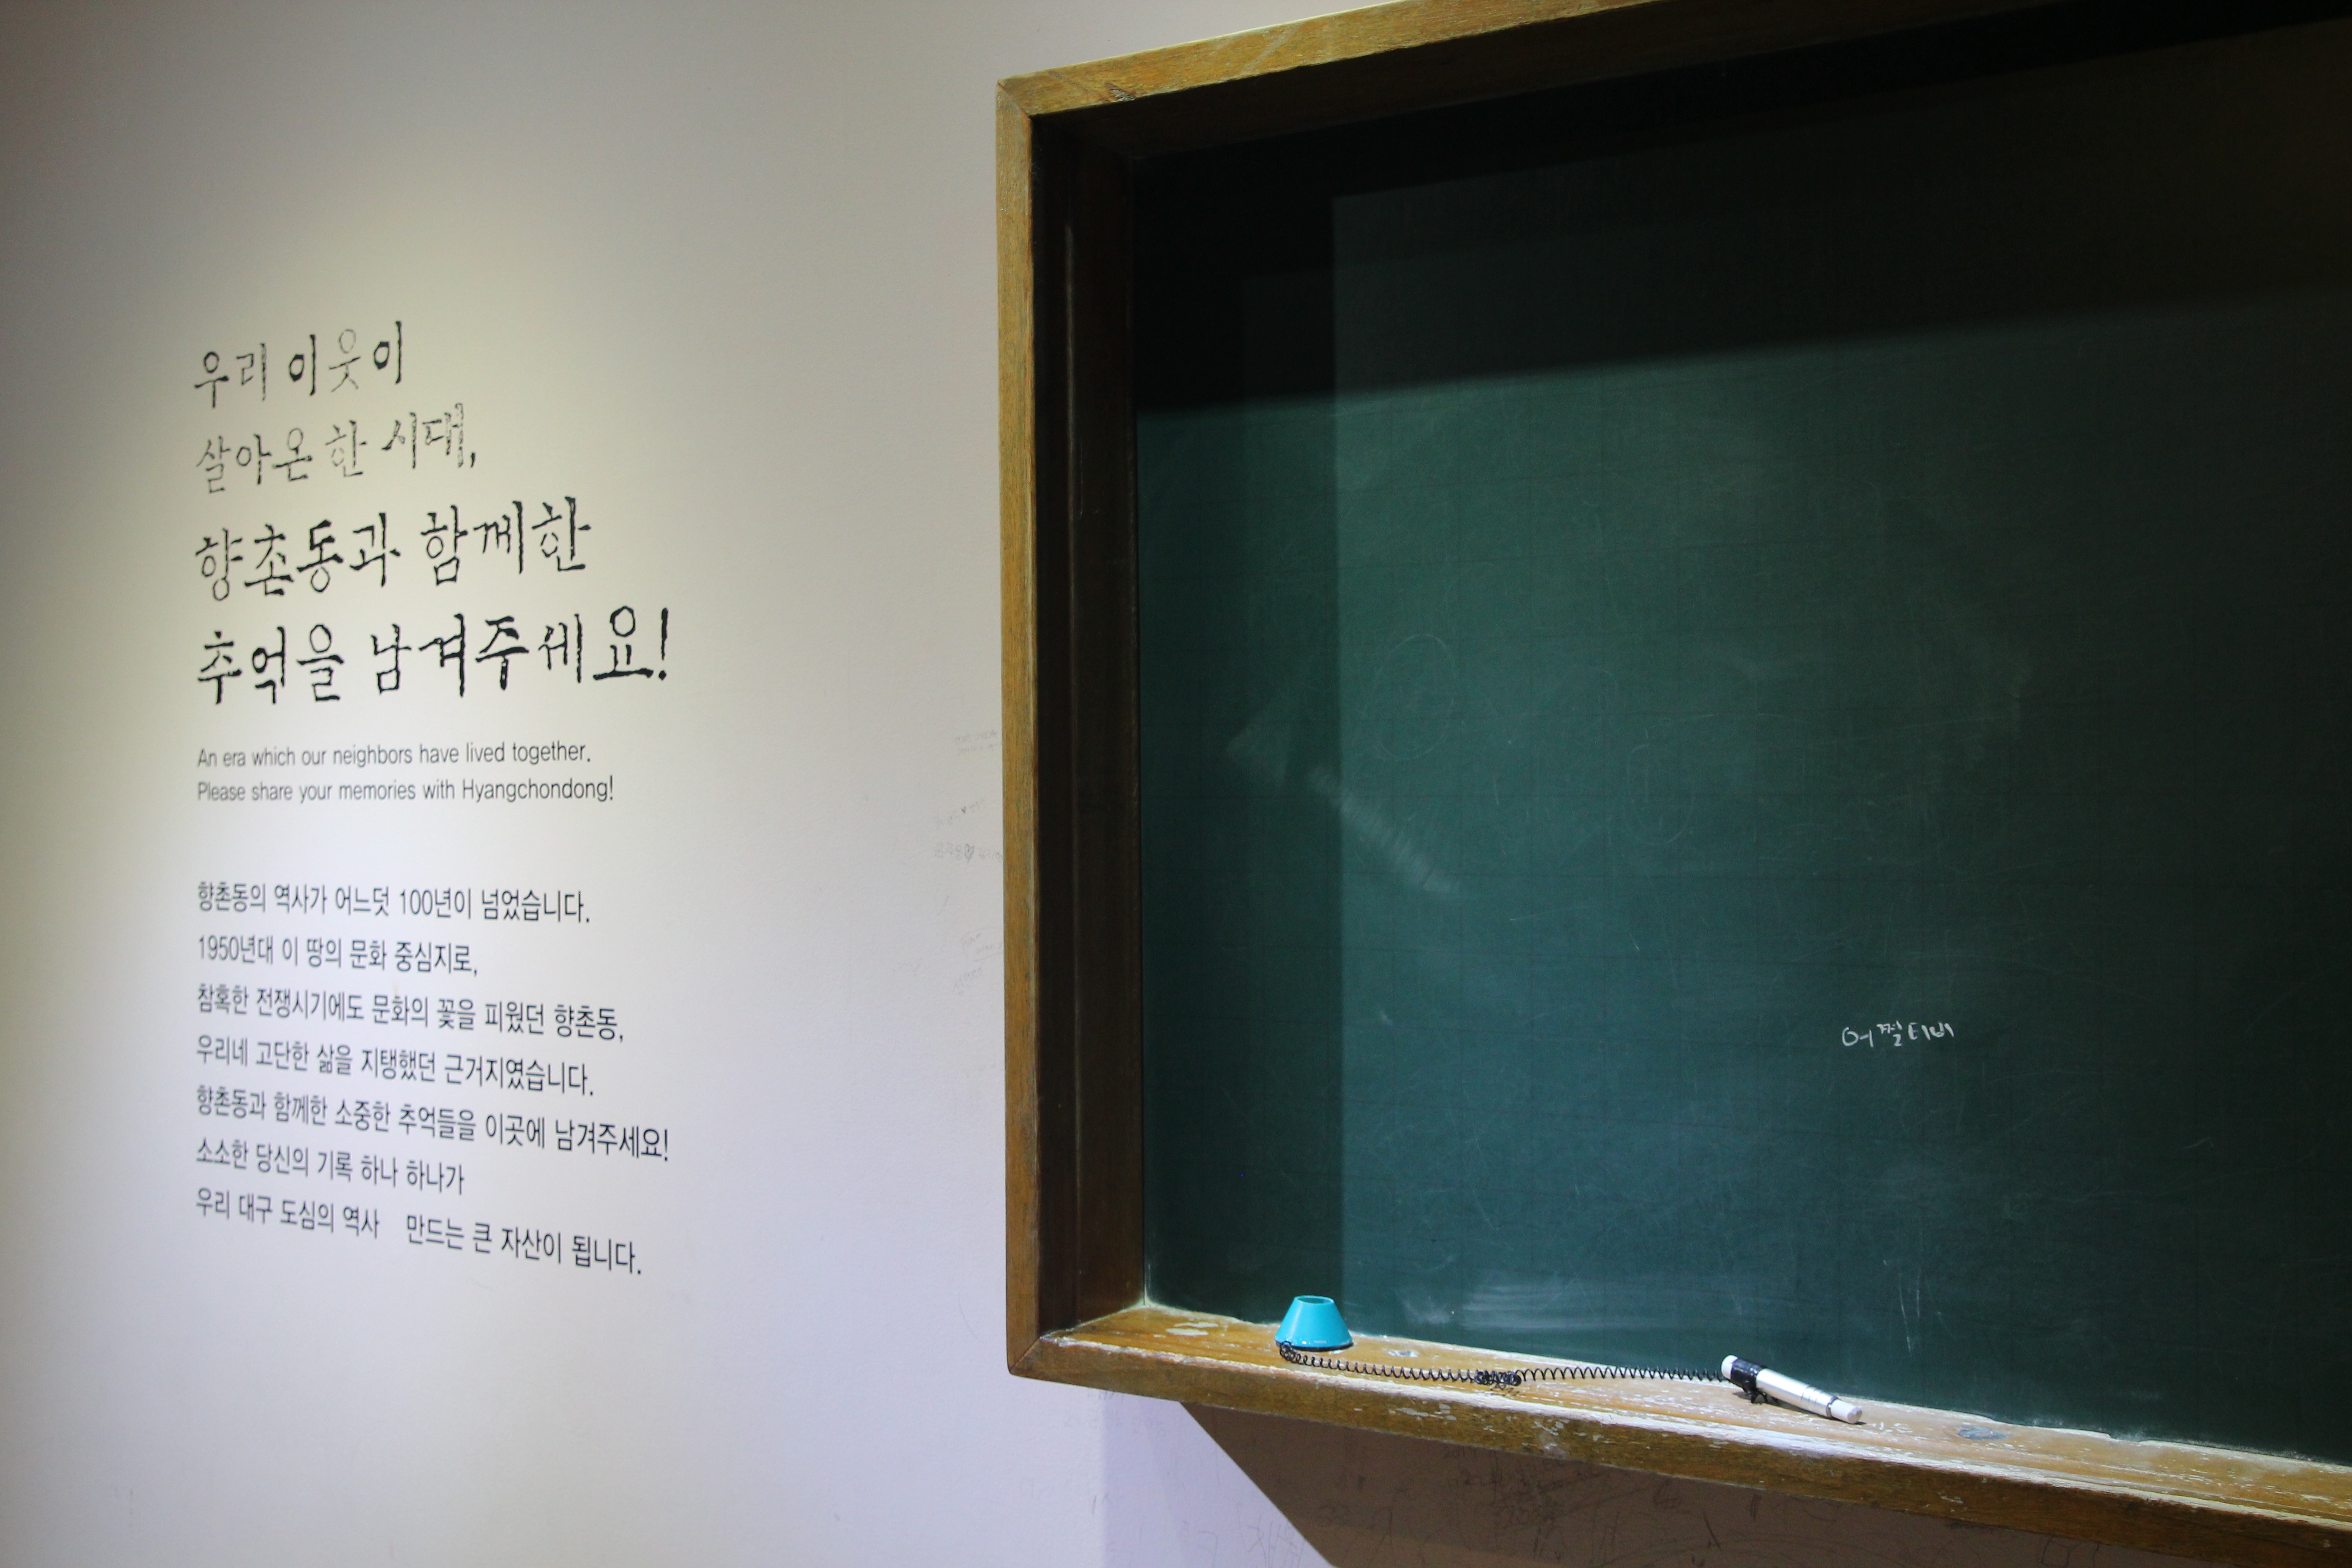 우리 이웃이
살아온 한 시대,
향촌동과 함께한
추억을 남겨주세요!
An era which our neighbors have lived together.
Please share your memories with Hyangchondong!
향촌동의 역사가 어느덧 100년이 넘었습니다.
1950년대 이 땅의 문화 중심지로,
참혹한 전쟁시기에도 문화의 꽃을 피웠던 향촌동,
우리네 고단한 삶을 지탱했던 근거지였습니다.
향촌동과 함께한 소중한 추억들을 이곳에 남겨주세요!
소소한 당신의 기록 하나 하나가
우리 대구 도심의 역사 만드는 큰 자산이 됩니다.
어쩔티비